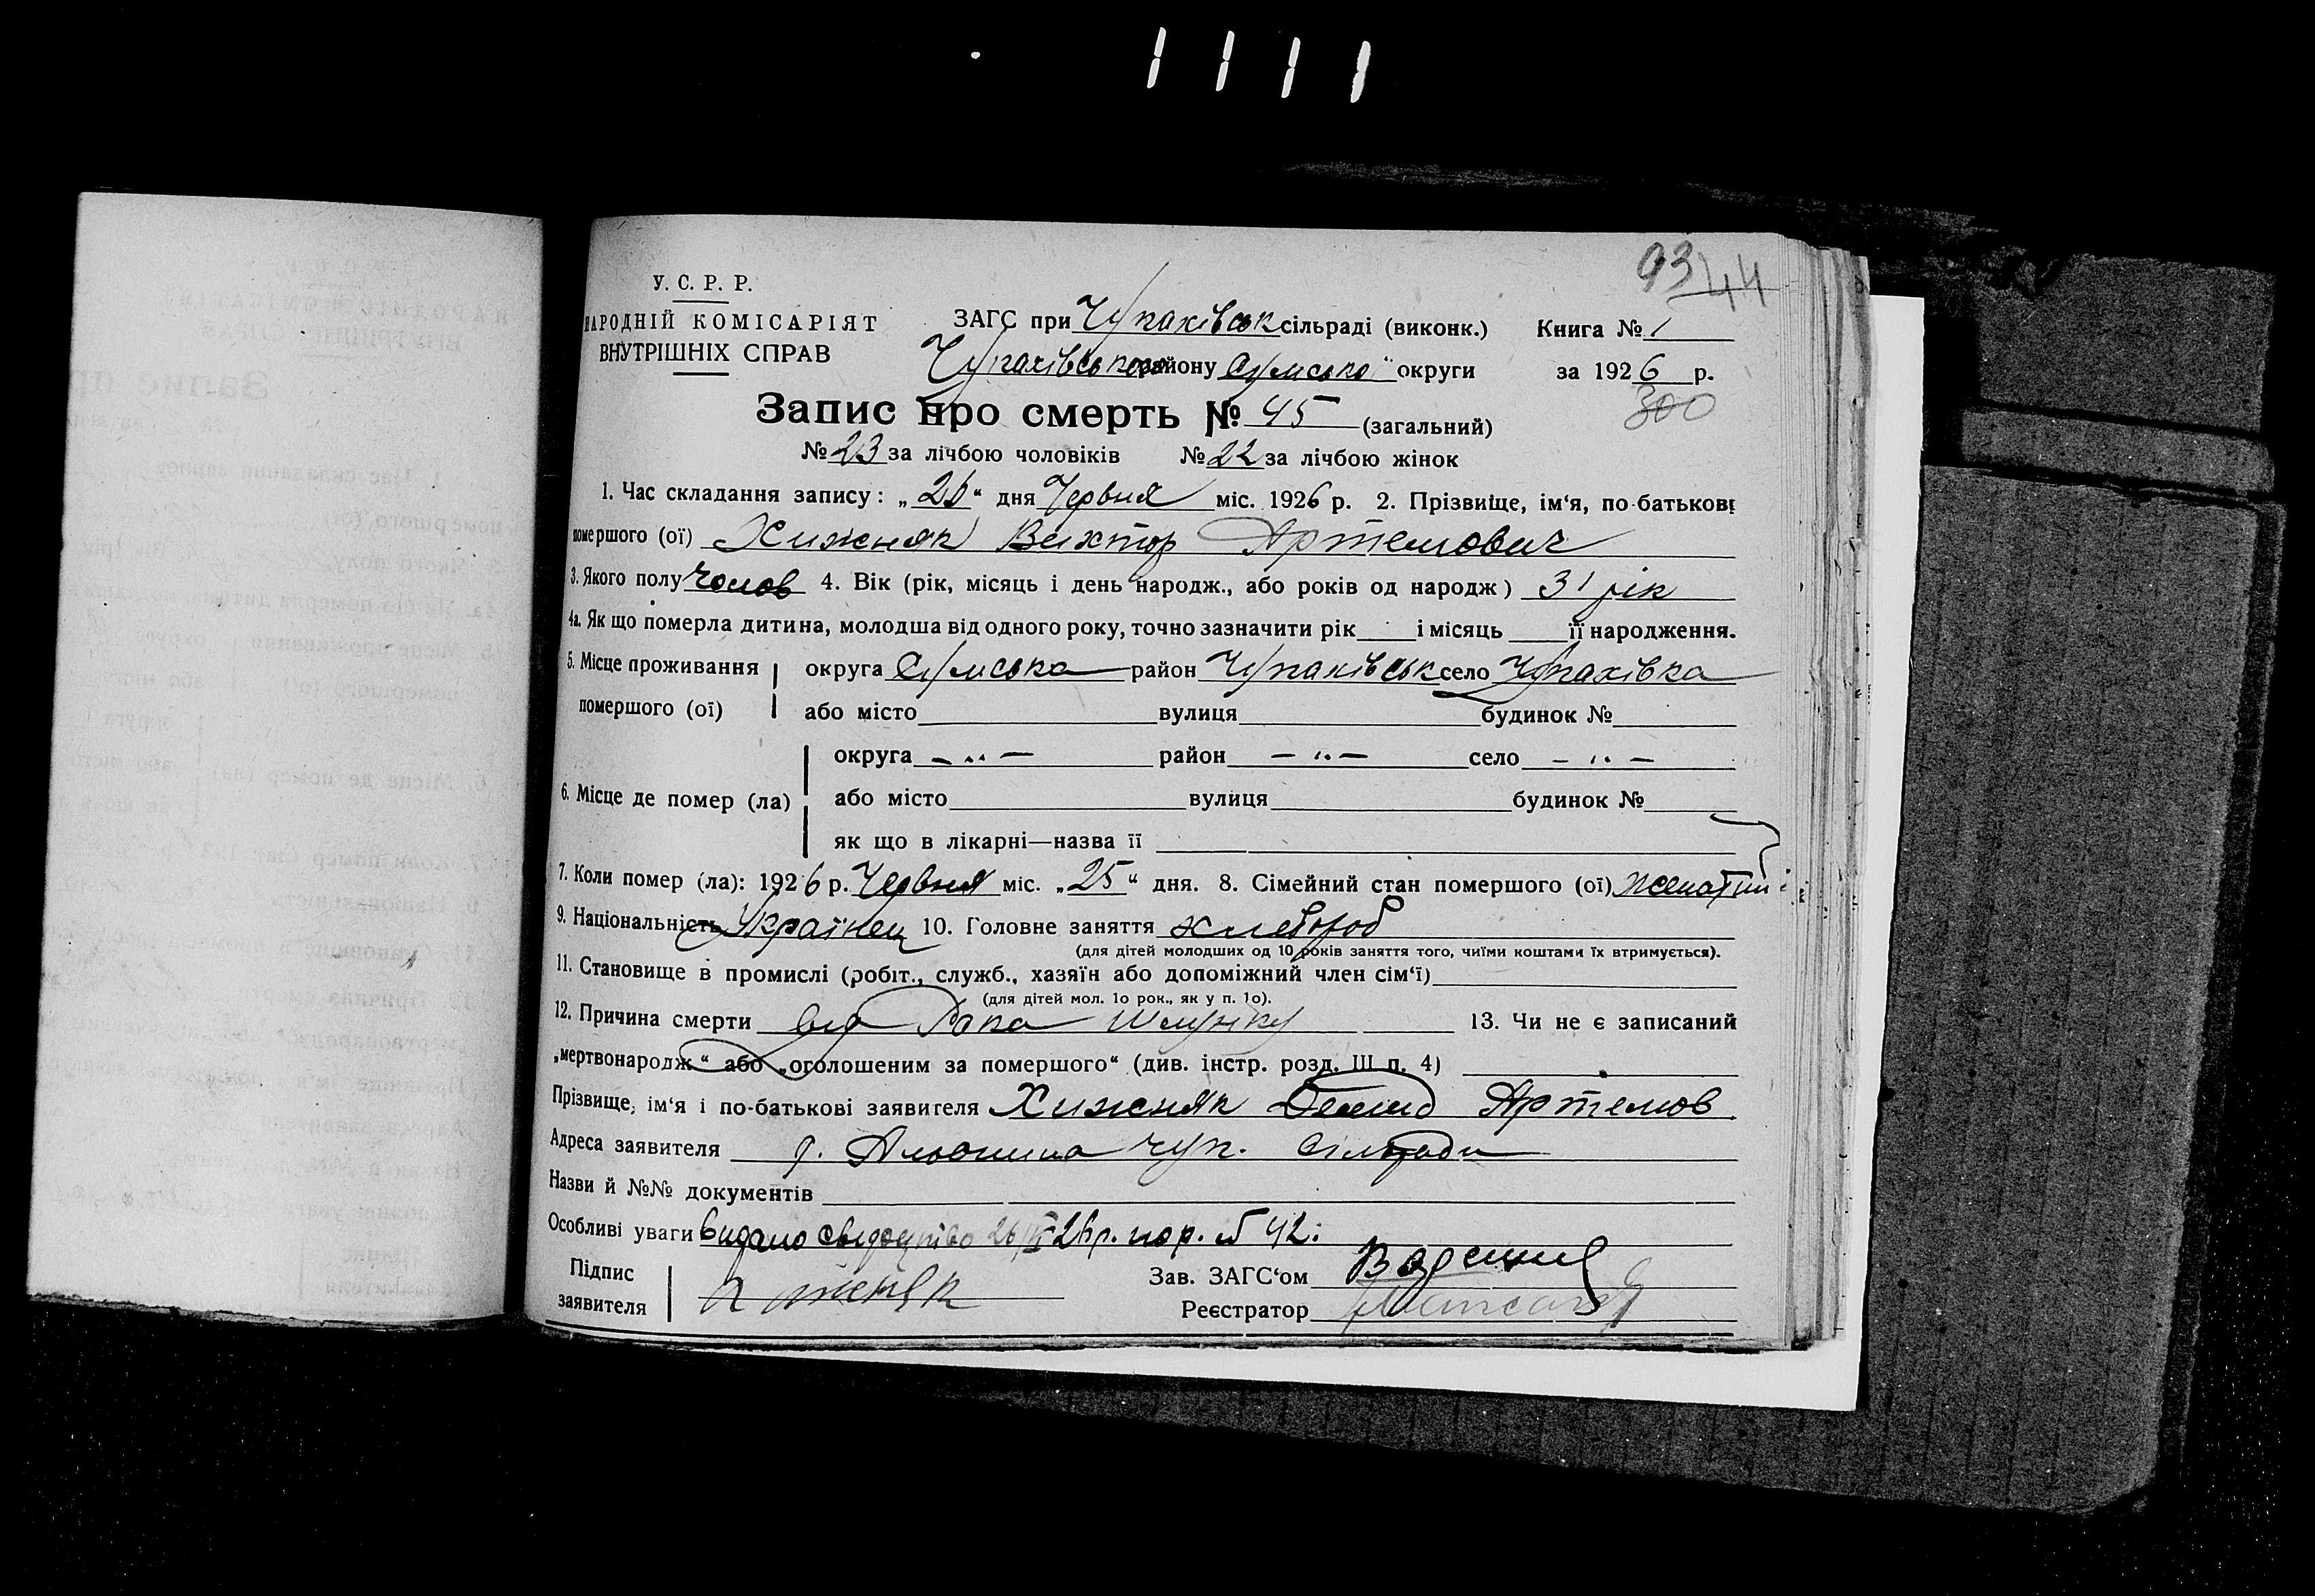 1111
93 44
У. С. Р. Р.
НАРОДНІЙ КОМІСАРІЯТ
ВНУТРІШНІХ СПРАВ
ЗАГС при Чупахівськ сільраді (виконк.) Книга № 1
Чупахівського району Сумської округи за 1926 р.
300
Запис про смерть № 45 (загальний)
№ 23 за лічбою чоловіків № 22 за лічбою жінок
1. Час складання запису: „26“ дня Червня міс. 1926 р. 2. Прізвище, ім‘я, по-батькові
помершого (ої) Хижняк Виктор Артемович
3. Якого полу чолов 4. Вік (рік, місяць і день народж., або років од народж) 31 рік
4а. Як що померла дитина, молодша від одного року, точно зазначити рік і місяць її народження.
5. Місце проживання округа Сумська район Чупахівськ село Чупахівка
помершого (ої) або місто вулиця будинок №
округа — „ — район — „ — село — „ —
6. Місце де помер (ла) або місто вулиця будинок №
як що в лікарні—назва її
7. Коли помер (ла): 1926 р. Червня міс. „25“ дня. 8. Сімейний стан помершого (ої) женатий
9. Національність Українец 10. Головне заняття хлебороб
(для дітей молодших од 10 років заняття того, чиїми коштами їх втримується).
11. Становище в промислі (робіт., служб., хазяїн або допоміжний член сім‘ї)
(для дітей мол. 10 рок., як у п. 10).
12. Причина смерти від Рака шлунку 13. Чи не є записаний
„мертвонародж.“ або „оголошеним за помершого“ (див. інстр. розд. III п. 4)
Прізвище, ім‘я і по-батькові заявителя Хижняк Демид Артемов
Адреса заявителя Чуп. сільради
Назви й №№ документів
Особливі уваги видано свидоцтво 26/VI 26 р. пор. № 42.
Підпис
заявителя Хижняк
Зав. ЗАГС‘ом
Реєстратор